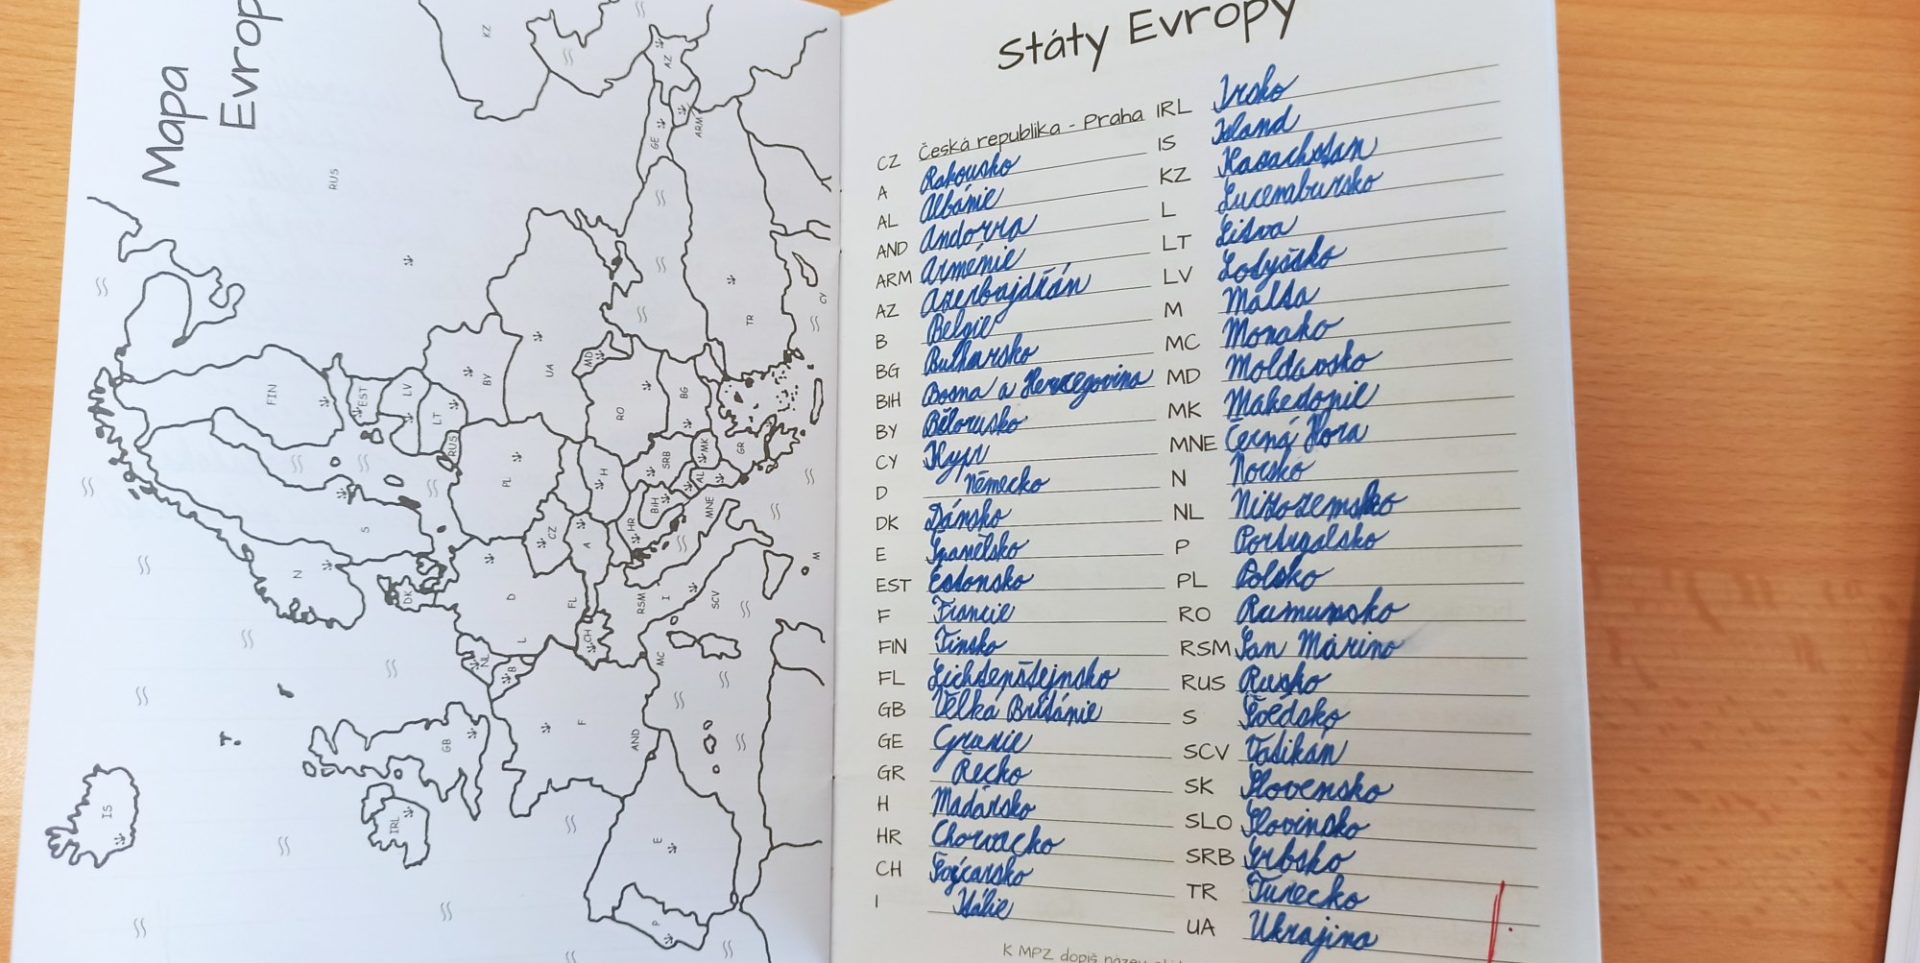 Mapa
Evrop
KZ
AZ
GE
ARM
RUS
TR
CY
MD
UA
BY
RO
BG
FIN
EST
LV
LT
RUS
PL
H
SRB
MK
AL
GR
BiH
MNE
HR
S
CZ
A
N
DK
D
FL
RSM
I
SCV
M
L
CH
NL
B
MC
F
AND
GB
IS
IRL
E
P
Státy Evropy
CZ Česká republika - Praha
A Rakousko
AL Albánie
AND Andorra
ARM Arménie
AZ Azerbajdžán
B Belgie
BG Bulharsko
BIH Bosna a Hercegovina
BY Bělorusko
CY Kypr
D Německo
DK Dánsko
E Španělsko
EST Estonsko
F Francie
FIN Finsko
FL Lichtenštejnsko
GB Velká Británie
GE Gruzie
GR Řecko
H Maďarsko
HR Chorvacko
CH Švýcarsko
I Itálie
IRL Irsko
IS Island
KZ Kasachstan
L Lucembursko
LT Litva
LV Lotyšsko
M Malta
MC Monako
MD Moldavsko
MK Makedonie
MNE Černá Hora
N Norsko
NL Nizozemsko
P Portugalsko
PL Polsko
RO Rumunsko
RSM San Marino
RUS Rusko
S Švédsko
SCV Vatikán
SK Slovensko
SLO Slovinsko
SRB Srbsko
TR Turecko
UA Ukrajina
K MPZ dopiš název